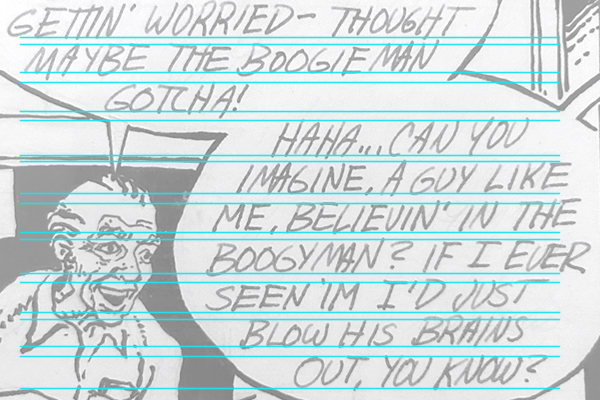 GETTIN' WORRIED- THOUGHT
MAYBE THE BOOGIEMAN
GOTCHA!
HAHA... CAN YOU
IMAGINE, A GUY LIKE
ME, BELIEVIN' IN THE
BOOGYMAN? IF I EVER
SEEN 'IM I'D JUST
BLOW HIS BRAINS
OUT, YOU KNOW?